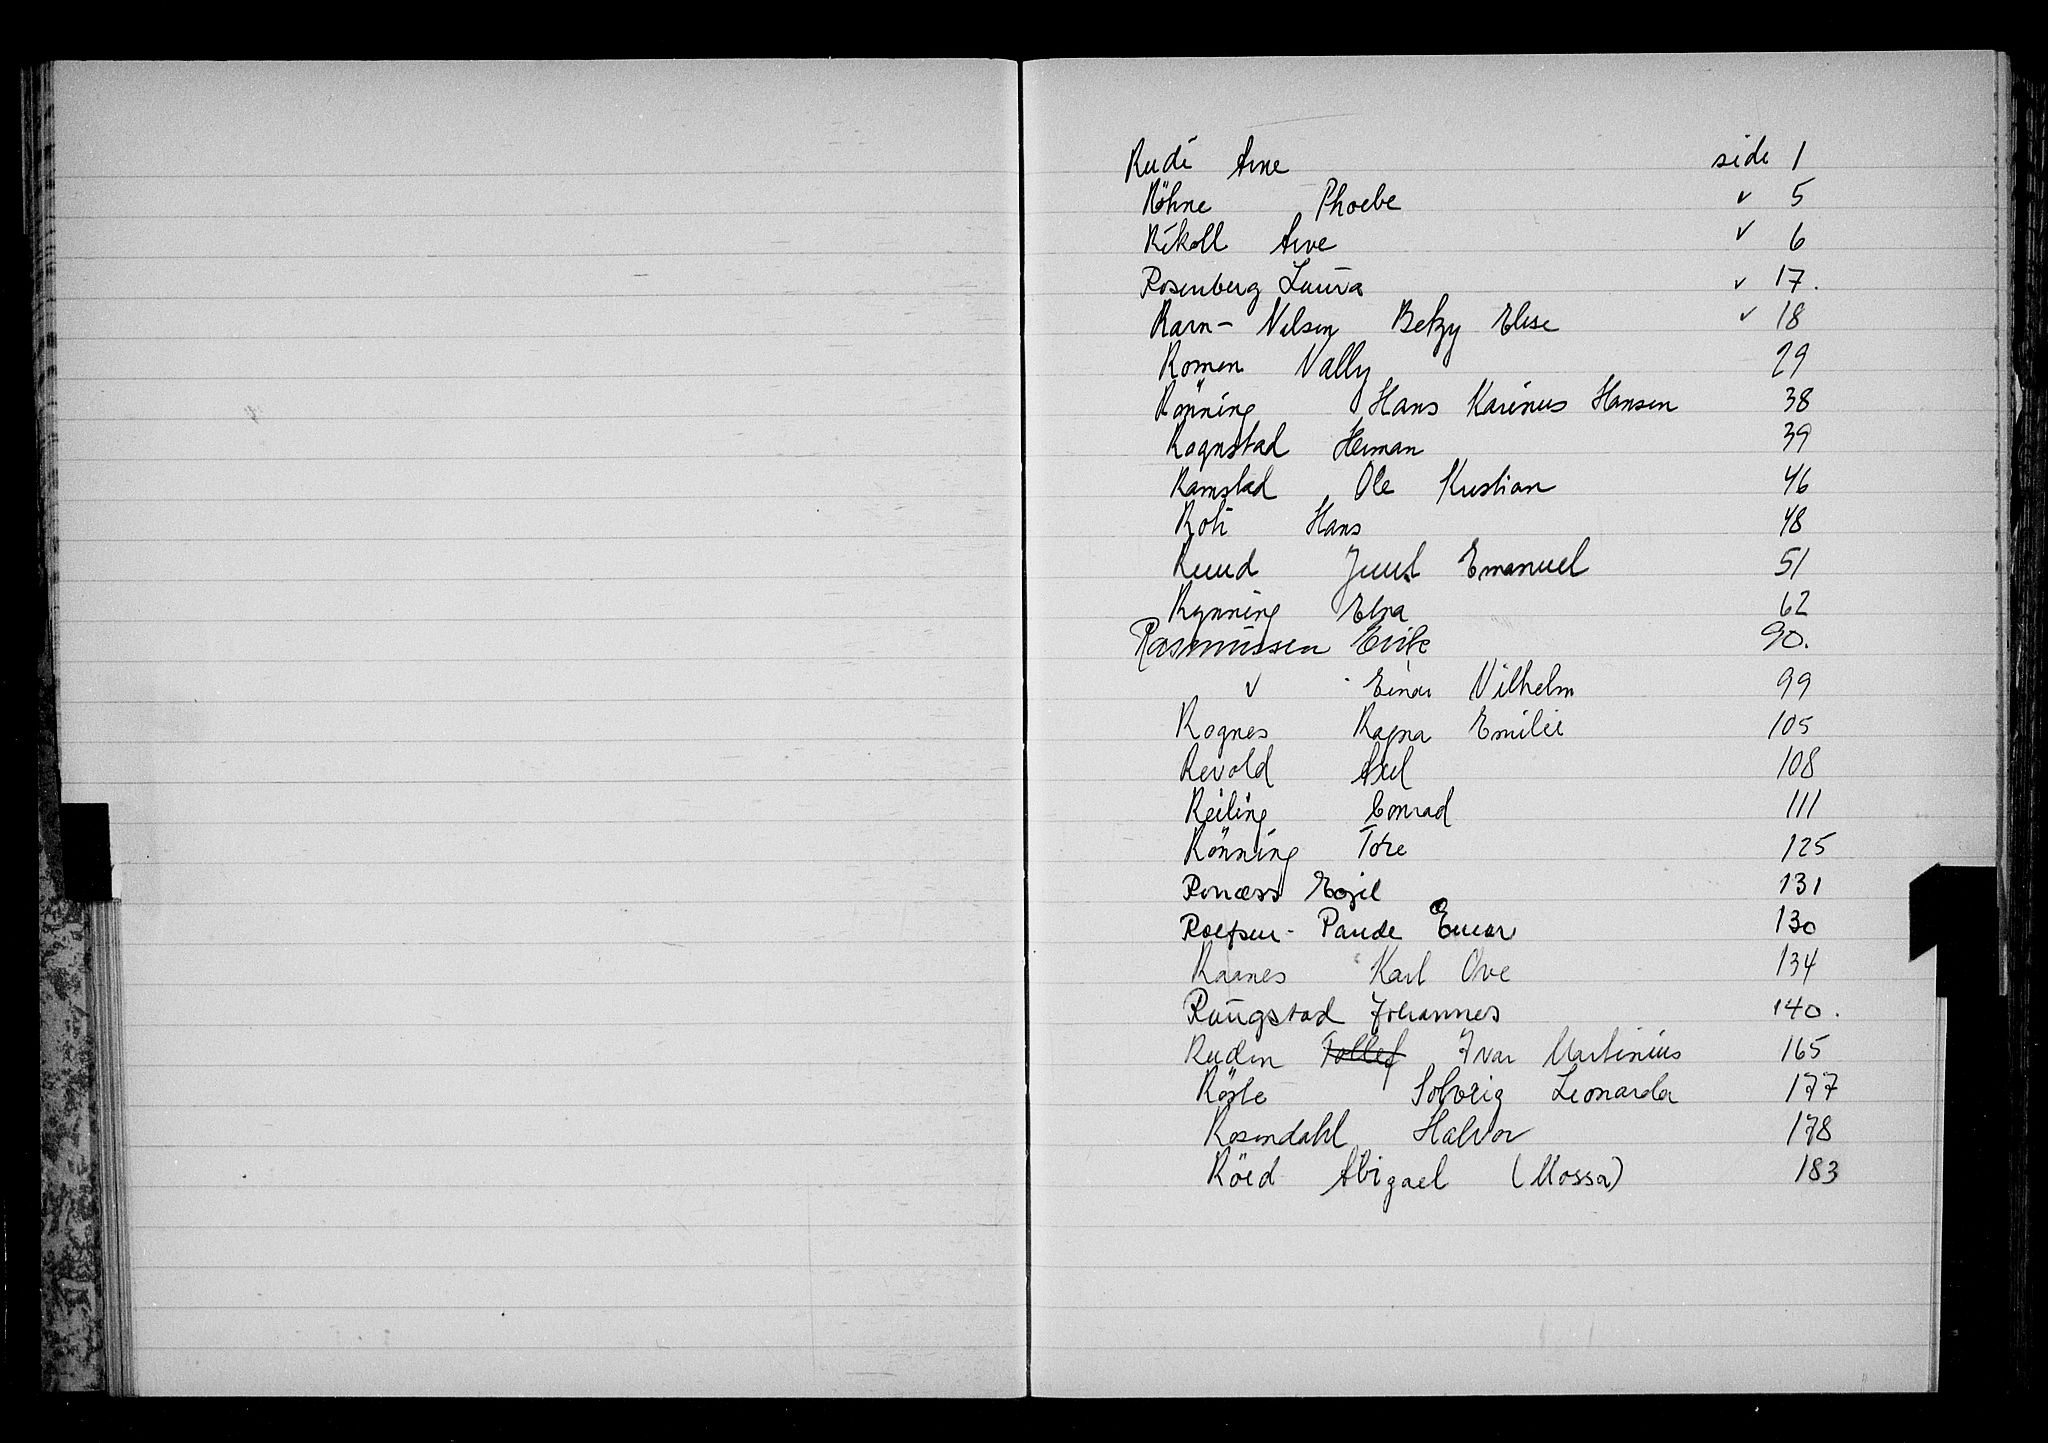 Rudi Arne side 1
Röhne Phoebe v 5
Rikoll Arve v 6
Rosenberg Laura v 17.
Ravn- Nilsen Betzy Elise v 18
Romen Vally 29
Rönning Hans Karinus Hansen 38
Rognstad Herman 39
Ramstad Ole Kristian 46
Roti Hans 48
Ruud Juul Emanuel 51
Rynning Elna 62
Rasmussen Eirik 90.
v Einar Vilhelm 99
Rognes Ragna Emilie 105
Revold Axel 108
Reiling Conrad 111
Rönning Tore 125
Renæss Egil 131
Roefsen- Paude Einar 130
Raanes Karl Ove 134
Raugstad Johannes 140.
Ruden Tollef Ivar Martinius 165
Röste Solveig Leonarda 177
Rosendahl Halvor 178
Röed Abigael (Mossa) 183